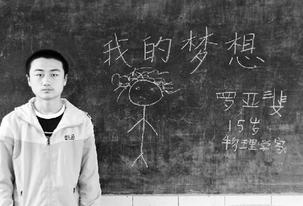 我的梦想
罗亚斐
15岁
物理学家